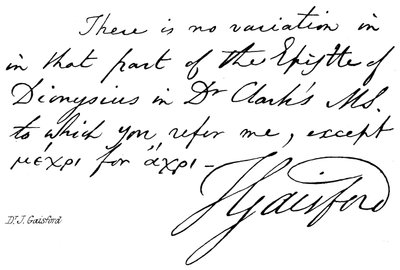 There is no variation in
in that part of the Epistle of
Dionysius in Dr Clark's MS.
to which you refer me, except
μέχρι for ἄχρι –
TGaisford
Dr. J. Gaisford